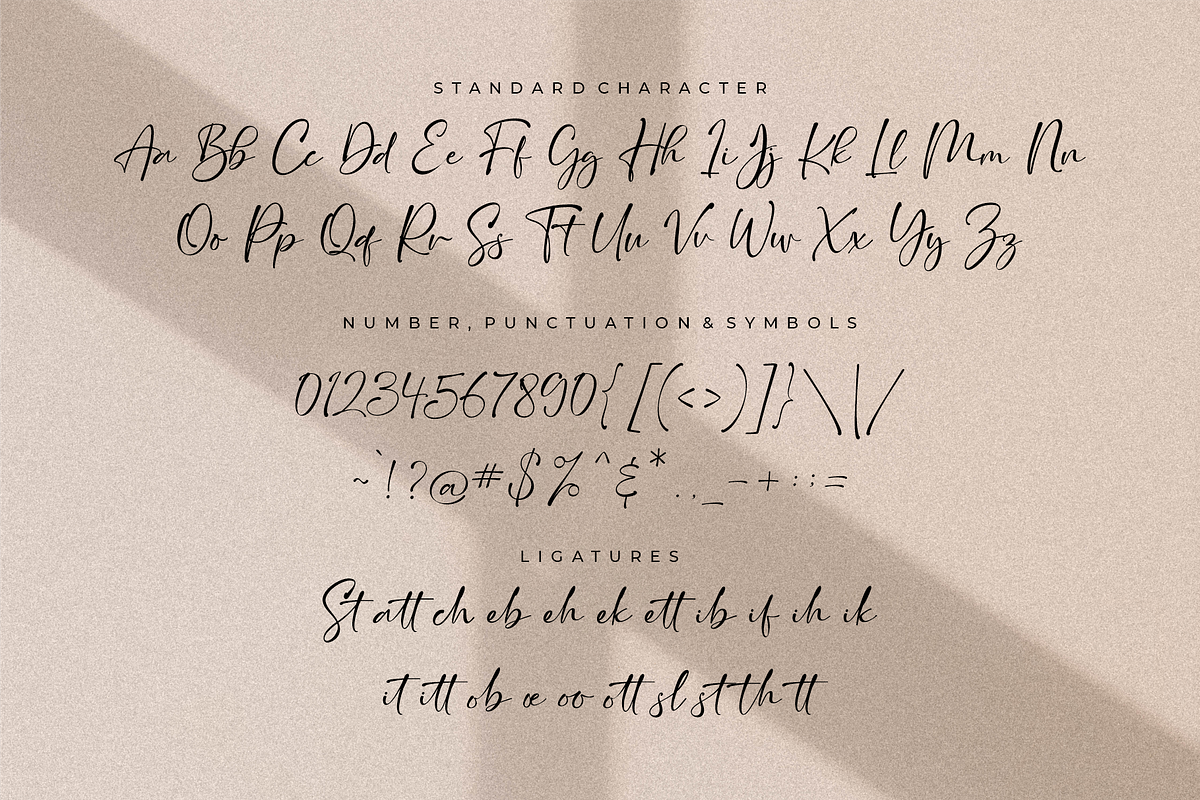 STANDARD CHARACTER
Aa Bb Cc Dd Ee Ff Gg Hh Ii Jj Kk Ll Mm Nn
Oo Pp Qq Rr Ss Tt Uu Vv Ww Xx Yy Zz
NUMBER, PUNCTUATION & SYMBOLS
01234567890{[(<>)]}\|/
~`!?@#$%^&*.,_-+:;=
LIGATURES
St att ch eb eh ek ett ib if ih ik
it itt ob oe oo ott sl st th tt